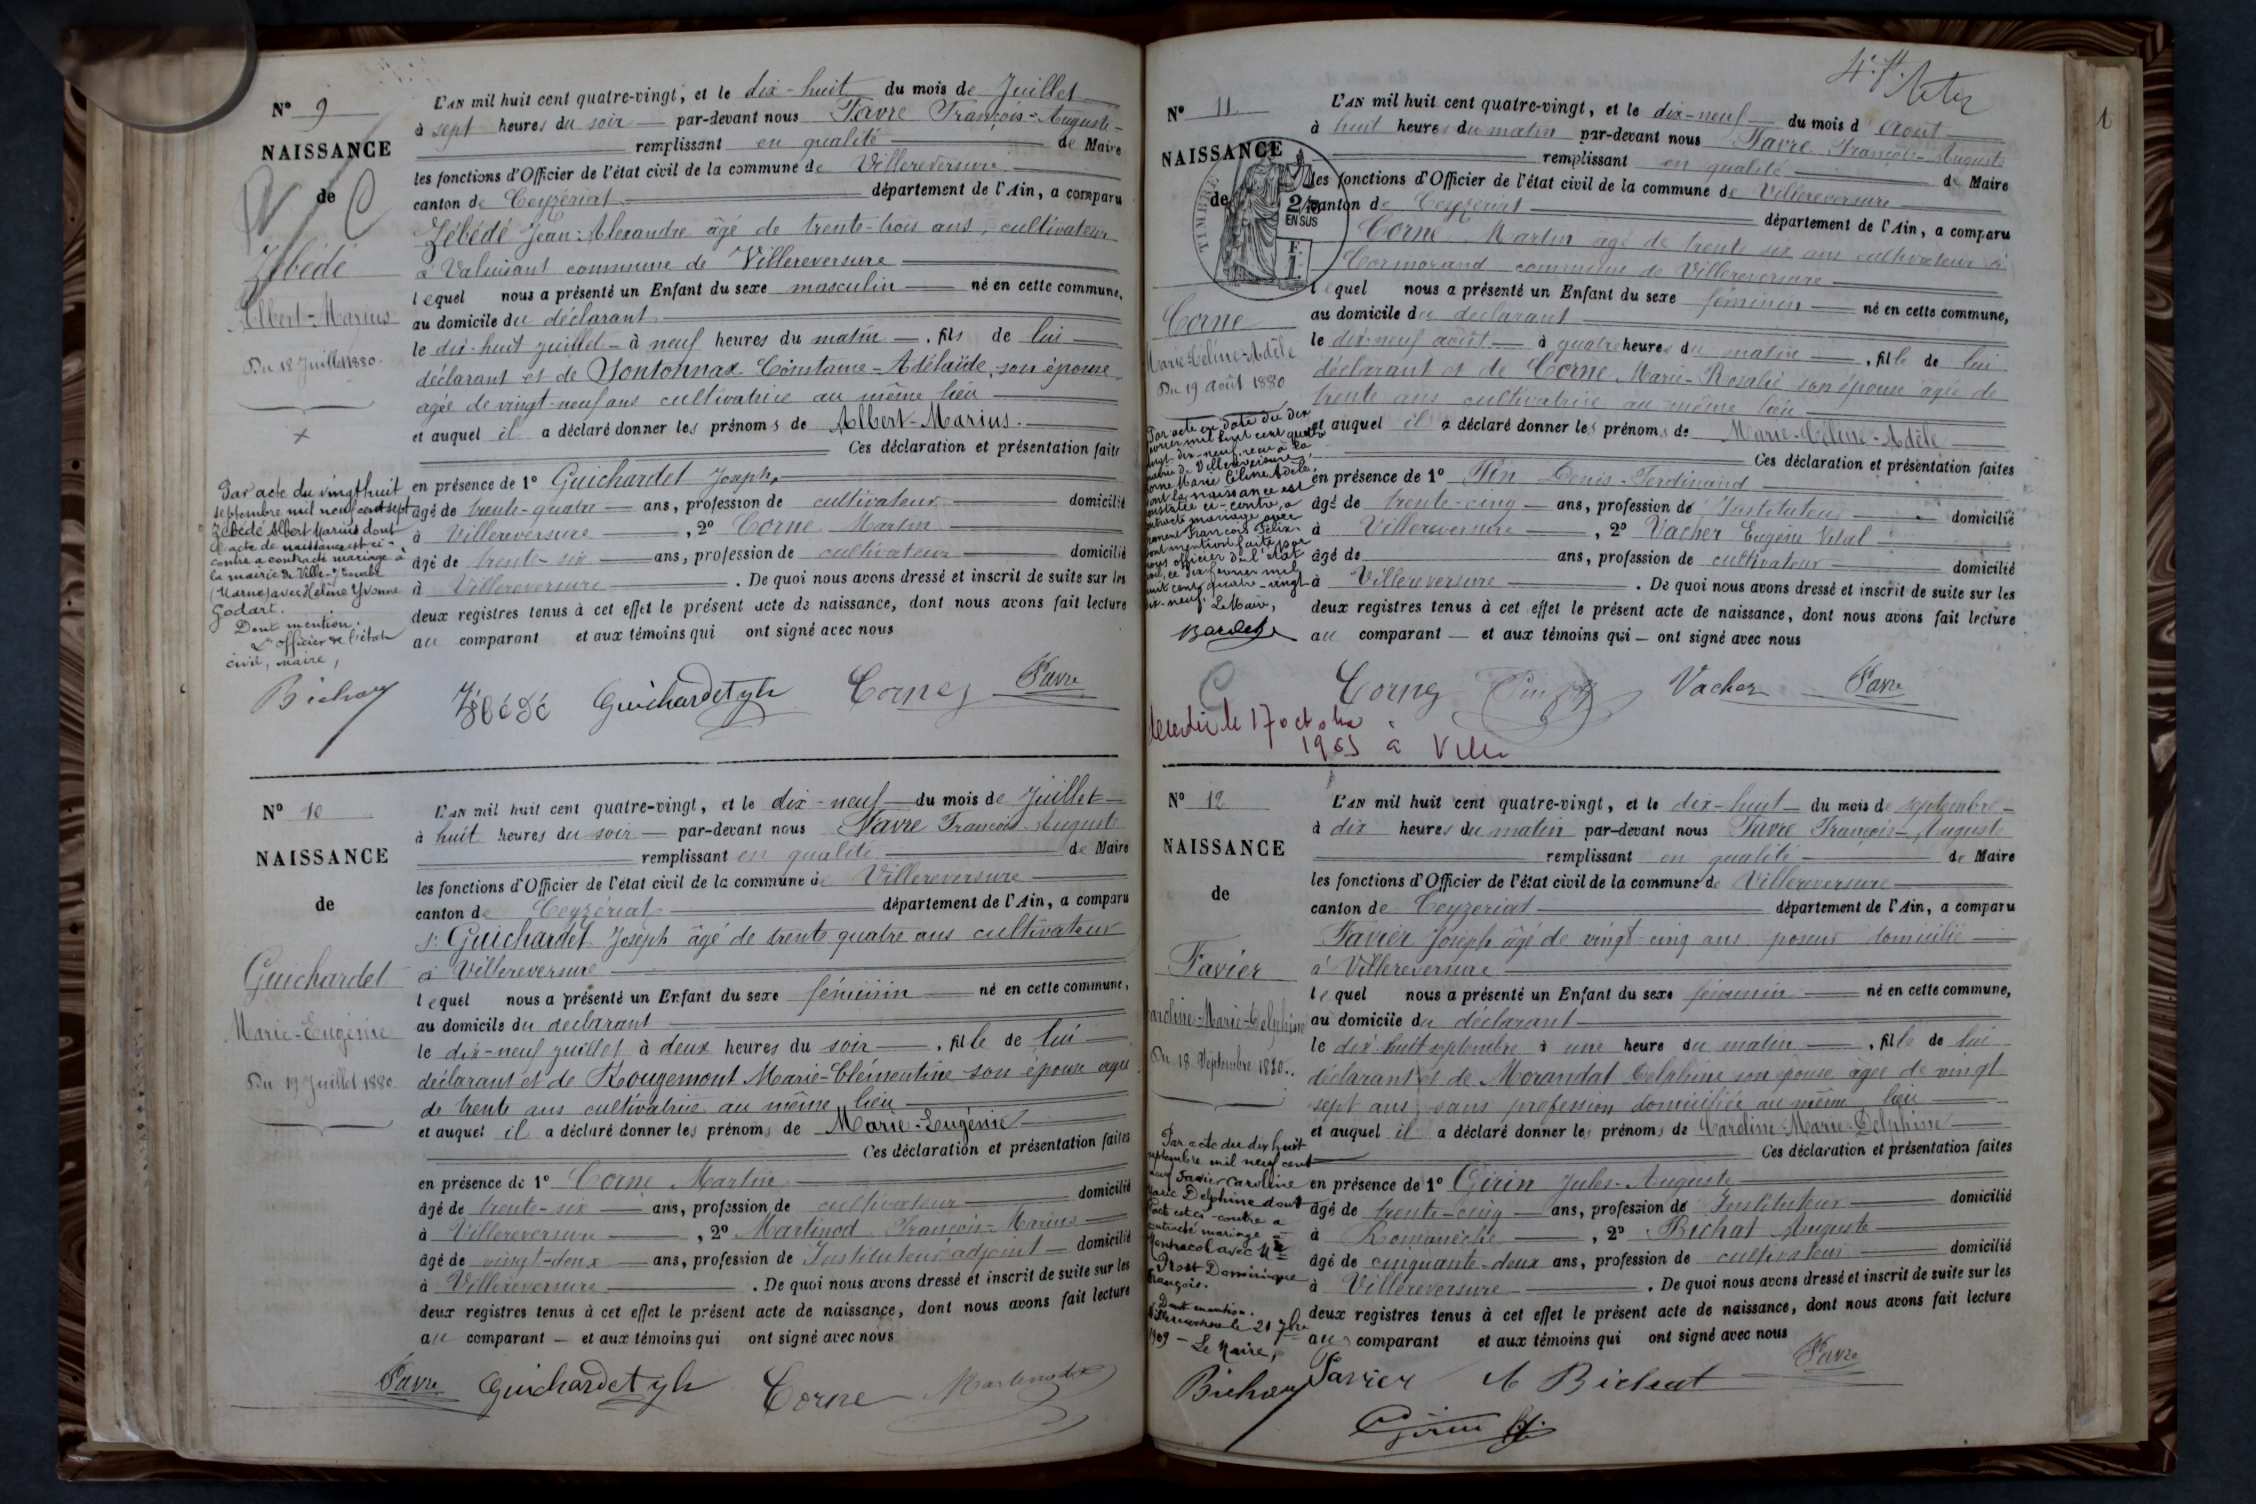 N° 9
NAISSANCE
de
Zébédé
Albert-Marius
Du 18 Juillet 1880.
Par acte du vingt huit
septembre mil neuf cent sept
Zébédé Albert Marius dont
l'acte de naissance est ci-
contre a contracté mariage à
la mairie de Ville-s/
(Marne) avec Hélène Yvonne
Godart.
Dont mention.
L'officier de l'état
civil, Maire,
L'AN mil huit cent quatre-vingt, et le dix-huit du mois de Juillet
à sept heures du soir par-devant nous Favre François-Auguste
remplissant en qualité de Maire
les fonctions d'Officier de l'état civil de la commune de Villereversure
canton de Ceyzériat département de l'Ain, a comparu
Zébédé Jean-Alexandre âgé de trente-trois ans, cultivateur
à Valuisant commune de Villereversure
lequel nous a présenté un Enfant du sexe masculin né en cette commune,
au domicile du déclarant
le dix-huit juillet à neuf heures du matin, fils de lui
déclarant et de Sontonnax Constance-Adélaïde, son épouse
agée de vingt-neuf ans cultivatrice au même lieu
et auquel il a déclaré donner les prénoms de Albert-Marius.
Ces déclaration et présentation faites
en présence de 1° Guichardet Joseph,
âgé de trente-quatre ans, profession de cultivateur domicilié
à Villereversure, 2° Corne Martin
âgé de trente-six ans, profession de cultivateur domicilié
à Villereversure. De quoi nous avons dressé et inscrit de suite sur les
deux registres tenus à cet effet le présent acte de naissance, dont nous avons fait lecture
au comparant et aux témoins qui ont signé avec nous
Zébédé Guichardet Corne Favre
N° 10
NAISSANCE
de
Guichardet
Marie-Eugénie
Du 19 Juillet 1880
L'AN mil huit cent quatre-vingt, et le dix-neuf du mois de Juillet
à huit heures du soir par-devant nous Favre François Auguste
remplissant en qualité de Maire
les fonctions d'Officier de l'état civil de la commune de Villereversure
canton de Ceyzériat département de l'Ain, a comparu
Guichardet Joseph âgé de trente quatre ans cultivateur
à Villereversure
lequel nous a présenté un Enfant du sexe féminin né en cette commune,
au domicile du déclarant
le dix-neuf juillet à deux heures du soir, fille de lui
déclarant et de Rougemont Marie-Clémentine son épouse agée
de trente ans cultivatrice au même lieu
et auquel il a déclaré donner les prénoms de Marie-Eugénie
Ces déclaration et présentation faites
en présence de 1° Corne Martin
âgé de trente-six ans, profession de cultivateur domicilié
à Villereversure, 2° Martinod François-Marius
âgé de vingt-deux ans, profession de Instituteur adjoint domicilié
à Villereversure. De quoi nous avons dressé et inscrit de suite sur les
deux registres tenus à cet effet le présent acte de naissance, dont nous avons fait lecture
au comparant et aux témoins qui ont signé avec nous
Favre Guichardet Corne Martinod
1
N° 11
NAISSANCE
de
TIMBRE
2/10
EN SUS
Corne
Marie-Céline-Adèle
Du 19 août 1880
Par acte en date du dix
février mil huit cent quatre
vingt-dix-neuf, reçu à la
mairie de Villereversure,
Corne Marie Céline Adèle
dont la naissance est
constatée ci-contre, a
contracté mariage avec
François Félix
dont mention faite par
nous officier de l'état
civil, ce dix février mil
huit cent quatre-vingt
dix-neuf. Le Maire,
L'AN mil huit cent quatre-vingt, et le dix-neuf du mois d'Août
à huit heures du matin par-devant nous Favre François-Auguste
remplissant en qualité de Maire
les fonctions d'Officier de l'état civil de la commune de Villereversure
canton de Ceyzériat département de l'Ain, a comparu
Corne Martin agé de trente six ans cultivateur à
Cormorand commune de Villereversure
lequel nous a présenté un Enfant du sexe féminin né en cette commune,
au domicile du déclarant
le dix-neuf août à quatre heures du matin, fille de lui
déclarant et de Corne Marie-Rosalie son épouse agée de
trente ans cultivatrice au même lieu
et auquel il a déclaré donner les prénoms de Marie-Céline-Adèle
Ces déclaration et présentation faites
en présence de 1° Pin Denis-Ferdinand
âgé de trente-cinq ans, profession de Instituteur domicilié
à Villereversure, 2° Vacher Eugène Vital
âgé de ans, profession de cultivateur domicilié
à Villereversure. De quoi nous avons dressé et inscrit de suite sur les
deux registres tenus à cet effet le présent acte de naissance, dont nous avons fait lecture
au comparant et aux témoins qui ont signé avec nous
Corne Pin Vacher Favre
le 17 octobre
1965 à
N° 12
NAISSANCE
de
Favier
Caroline-Marie-Delphine
Du 18 Septembre 1880.
Par acte du dix huit
septembre mil neuf cent
neuf Favier Caroline
Marie Delphine dont
l'acte est ci-contre a
contracté mariage à
Montracol avec Mr
Prost Dominique
François.
Dont mention.
Villereversure le 21 7bre
1909 - Le Maire,
L'AN mil huit cent quatre-vingt, et le dix-huit du mois de septembre
à dix heures du matin par-devant nous Favre François-Auguste
remplissant en qualité de Maire
les fonctions d'Officier de l'état civil de la commune de Villereversure
canton de Ceyzeriat département de l'Ain, a comparu
Favier Joseph âgé de vingt cinq ans poseur domicilié
à Villereversure
lequel nous a présenté un Enfant du sexe féminin né en cette commune,
au domicile du déclarant
le dix-huit septembre à une heure du matin, fille de lui
déclarant et de Morandat Delphine son épouse âgée de vingt
sept ans, sans profession domiciliée au même lieu
et auquel il a déclaré donner les prénoms de Caroline-Marie-Delphine
Ces déclaration et présentation faites
en présence de 1° Girin Jules-Auguste
âgé de trente-cinq ans, profession de Instituteur domicilié
à Romanèche, 2° Bichat Auguste
âgé de cinquante-deux ans, profession de cultivateur domicilié
à Villereversure. De quoi nous avons dressé et inscrit de suite sur les
deux registres tenus à cet effet le présent acte de naissance, dont nous avons fait lecture
au comparant et aux témoins qui ont signé avec nous
Favier A Bichat Favre
Girin